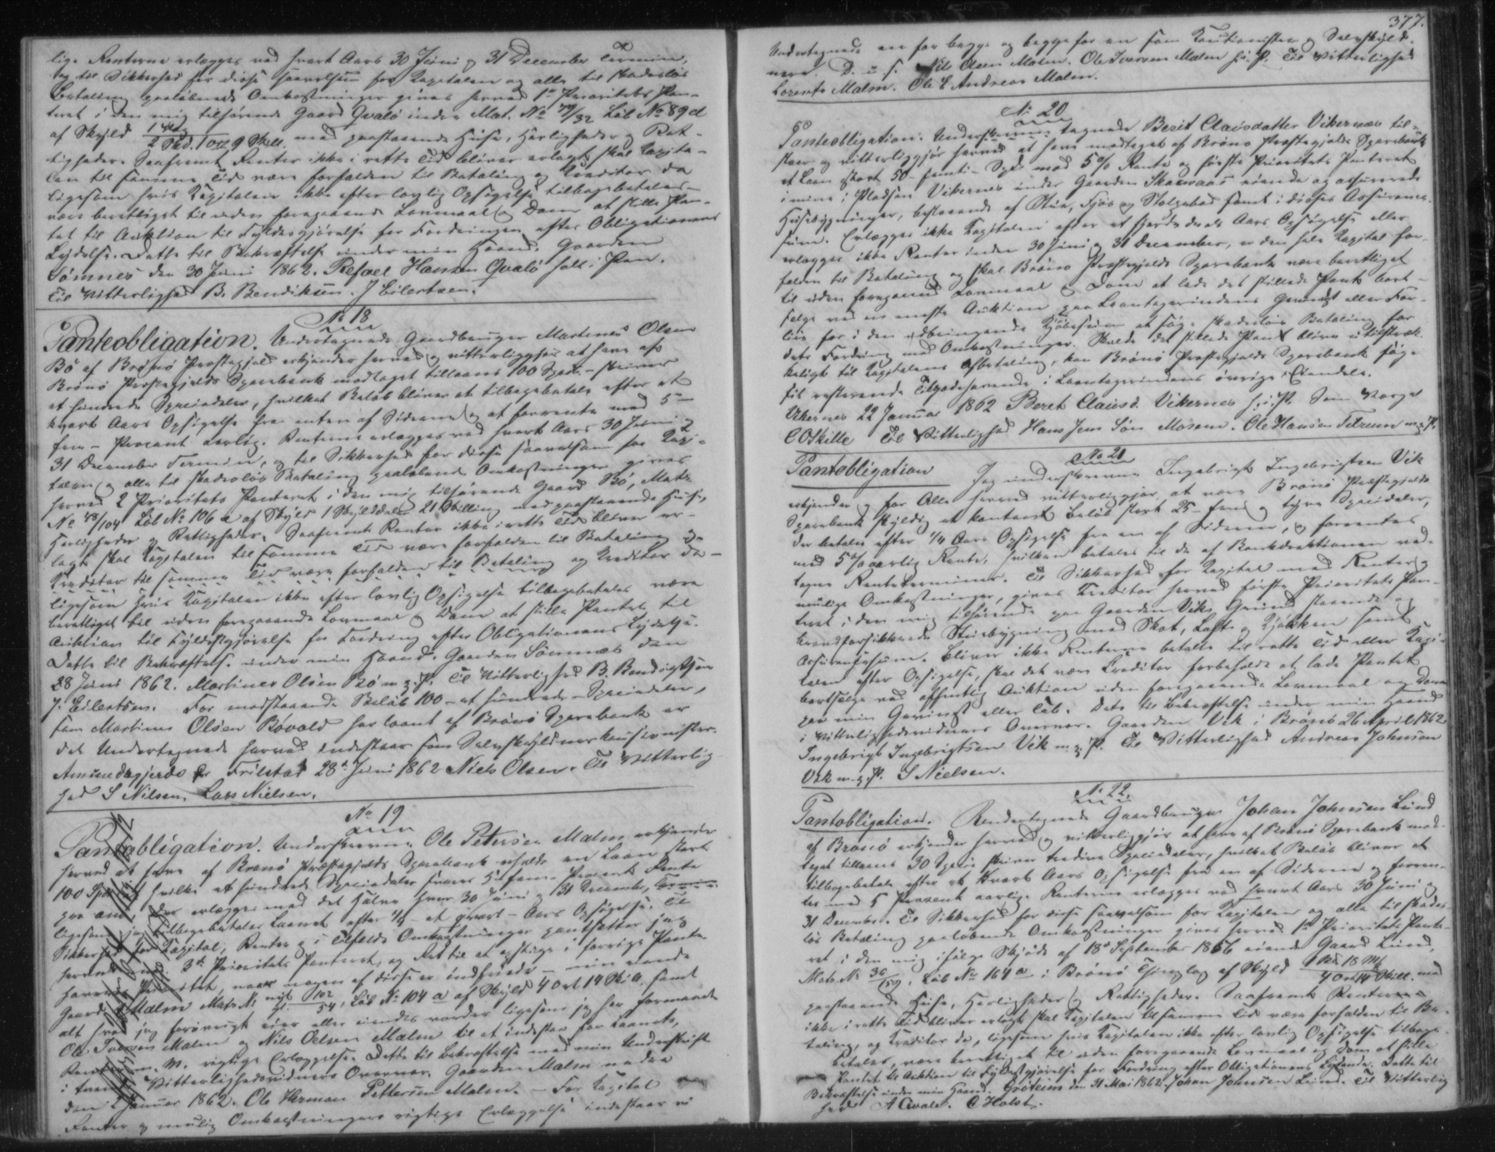 lige. Renterne erlægges ved hvert Aars 30 Juni og 31 December Termin,
og til Sikkerhed for disse saavelsom for Kapitalen og alle til skadesløs
Betaling paaløbende Omkostninger gives herved 1ste Prioritets Pan-
teret i den mig tilhørende Gaard Qvalø under Mat. No 79/32 Løb No 89 d
af Skyld med paastaaende Huse, Herligheder og Ret-
tigheder. Saafremt Renter ikke i rette Tid bliver erlagt skal Kapita-
len til samme Tid være forfalden til Betaling og Kreditor da
ligesom hvis Kapitalen ikke efter lovlig Opsigelse tilbagebetales
være berettiget til uden foregaaende Lovmaal og Dom at stille Pan-
tet til Auktion til Fyldestgjørelse for Fordringen efter Obligationens
Lydelse. Dette til Bekræftelse under min Haand. Gaarden
Sømnes den 30 Juni 1862. Refael Hansen Qvalø hold i Pen.
Til Vitterlighed B. Bendiksen. J Eilertsen.
No 18
Panteobligation. Undertegnede Gaardbruger Martinus Olsen
Bø af Brønø Præstegjeld erkjender herved og vitterliggjør at have af
Brønø Præstegjelds Sparebank modtaget tillaans 100 Spd. skriver
et hundrede Speciedaler, hvilket Beløb bliver at tilbagebetale efter et
kvart Aars Opsigelse fra enten af Siderne og at forrente med 5
fem Procent aarlig. Renterne erlægges ved hvert Aars 30 Juni og
31 December Termin, og til Sikkerhed for disse saavelsom for Kapi-
talen og alle til skadesløs Betaling paaløbende Omkostninger gives
herved 2 Prioritets Panteret i den mig tilhørende Gaard Bø, Matr.
No 48/104 Løb No 106 a af Skyld 1 Skylddaler 21 Skilling med paastaaende Huse,
Herligheder og Rettigheder. Saafremt Renter ikke i rette Tid bliver er-
lagt skal Kapitalen til samme Tid være forfalden til Betaling og
Kreditor til samme Tid være forfalden til Betaling og Kreditor da
ligesom hvis Kapitalen ikke efter lovlig Opsigelse tilbagebetales være
berettiget til uden foregaaende Lovmaal og Dom at stille Pantet til
Auktion til Fyldestgjørelse for Fordring efter Obligationens Lydelse.
Dette til Bekræftelse under min Haand. Gaarden Sømnes den
28 Juni 1862. Martinus Olsen Bø m. p. P. Til Vitterlighed B. Bendigtsen
J. Eilertsen. For modstaaende Beløb 100 et hundrede Speciedaler,
som Martinus Olsen har laant af Brønø Sparebank er
det Undertegnede herved indestaar som Selvskyldnerkautionister.
Frilstad 28de Juni 1862 Niels Olsen. Til Vitterlig-
hed S Nilsen. Lars Nielsen.
No 19
Panteobligation. Underskrevne Ole Petersen Malm erkjender
herved at have af Brønø Præstegjelds Sparebank erholdt en Laan stort
100 Spd. hvilke et hundrede Speciedaler svares fem Procent Rente
pro anno der erlægges med det halve hver 30 Juni og 31 December,
ligesom jeg tilbagebetaler Laanet efter 1/4 et qvart Aars Opsigelse. Til
Sikkerhed for Kapital, Renter og i Tilfælde Omkostninger pantsætter jeg
herved 3die Prioritets Panteret, og Ret til at opstige i forrige Pante-
haveres Sted, naar nogen af disse er indfriede min eiende
Gaard Malm Matr. No nyt 102 gl. 54, Løb No 104 a af Skyld 4 Ort 14 Sk. a, samt
alt hvad jeg forøvrigt eier eller eiendes vorder ligesom jeg har formaaet
Ole Iversen Malm og Nils Oelsen Malm til at indestaa for Laanet,
Renter m. M. rigtige Erlæggelse. Dette til Bekræftelse med min Underskrift
i tvende Vitterlighedsvidners Overvær. Gaarden Malm
den Januar 1862. Ole Herman Pettersen Malm. For Kapital
Renter og mulig Omkostningers rigtige Erlæggelse indestaar vi
377.
Undertegnede en for begge og begge for en som Kautionister og Selvskyld-
nere. D. u. s. Nils Olsen Malm. Ole Iversen Malm h. i. P. Til Vitterlighed
Lorents Malm. Ole L Andreas Malm.
No 20
Panteobligation. Undertegnede Berit Claisdatter Vikernes til-
staar og vitterliggjør herved at have modtaget af Brønø Præstegjelds Sparebank
et Laan stort 50 femti Spd. mod 5% Rente og første Prioritets Panteret
i mine i Pladsen Vikernes under Gaarden Skomaas eiende og assurerede
Husebygninger, bestaaende af Stue, Fjøs og Stolpebod samt i disses Assurance-
sum. Erlægges ikke Kapitalen efter et fjerdedeels Aars Opsigelse eller
erlægges ikke Renter inden 30 Juni og 31 December, er den hele Kapital for-
falden til Betaling og skal Brønø Præstegjelds Sparebank være berettiget
til uden foregaaende Lovmaal og Dom at lade det stillede Pant bort-
sælge ved en Auktion paa Laantagerindens Gevinst eller For-
liis for i den udbringende Kjøbesum at søge skadesløs Betaling for
dets Fordring med Omkostninger. Skulde det stillede Pant blive utilstræk-
keligt til Kapitalens Afbetaling, kan Brønø Præstegjelds Sparebank søge
sit resterende Tilgodehavende i Laantagerindens øvrige Eiendele.
Vikernes 22 Januar 1862 Beret Claisd. Vikernes h. i. P. Som Værge
C Oskille Til Vitterlighed Hans Jens Søn Mosem. Ole Hansen Tilrem m. p. P.
No 21
Pantobligation Jeg underskrevne Ingebrigt Ingebrigtsen Vik
erkjender og for Alle herved vitterliggjør at være Brønø Præstegjelds
Sparebank skyldig et kontant Beløb stort 25 fem og tyve Speciedaler,
der betales efter 1/4 Aars Opsigelse fra en af Siderne, og forrentes
med 5% aarlig Rente, hvilken betales til de af Bankdirektionen ved-
tagne Renteterminer. Til Sikkerhed for Kapital med Renter og
mulige Omkostninger, gives Kreditor herved første Prioritets Pan-
teret i den mig tilhørende paa Gaarden Viks Grund staaende og
brandforsikkrede Stuebygning med Skot, Loft og Kjøkken samt
Assurancesum. Bliver ikke Renterne betalte til rette Tid eller Kapi-
talen efter Opsigelse, skal det være Kreditor forbeholdt at lade Pantet
bortsælge ved offentlig Auktion uden foregaaende Lovmaal og Dom
paa min Gevinst eller Tab. Dets til Bekræftelse under min Haand
i Vitterlighedsvidners Overvær. Gaarden Vik i Brønø 26 April 1862
Ingebrigt Ingebrigtsen Vik m. p. P. Til Vitterlighed Andreas Johnsen
Vik m. p. P. S Nielsen.
No 22.
Pantobligation. Undertegnede Gaardbruger Johan Johnsen Lund
af Brønø erkjender herved og vitterliggjør at have af Brønø Sparebank mod-
taget tillaans 30 Spd. skriver tredive Speciedaler, hvilket Beløb bliver at
tilbagebetale efter et kvart Aars Opsigelse fra en af Siderne og forren-
tes med 5 Procent aarlig. Renterne erlægges ved hvert Aars 30 Juni og
31 December. Til Sikkerhed for disse saavelsom for Kapitalen og alle til skades-
løs Betaling paaløbende Omkostninger gives herved 1ste Prioritets Pante-
ret i den mig ifølge Skjøde af 18 September 1856 eiende Gaard Lund,
Matr. No 30/59, Løb No 164 a i Brønø Tinglag af Skyld med
paastaaende Huse, Herligheder og Rettigheder. Saafremt Renterne
ikke i rette Tid bliver erlagt skal Kapitalen til samme Tid være forfalden til Be-
taling, og Kreditor da, ligesom hvis Kapitalen ikke efter lovlig Opsigelse tilbage-
betales, være berettiget til uden foregaaende Lovmaal og Dom at stille
Pantet til Auktion til Fyldestgjørelse for Fordring efter Obligationens Lydende. Dette til
Bekræftelse under min Haand. Grøtheim den 31 Mai 1862. Johan Johnsen Lund. Til Vitterlig-
hed A Qvale. C Holst.